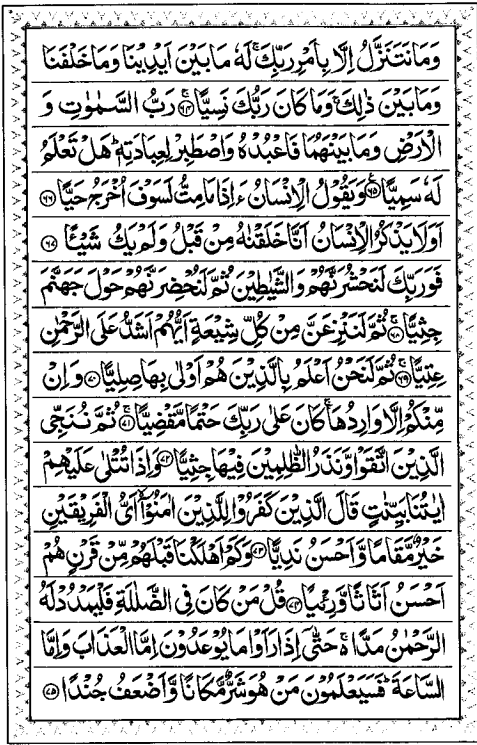 وَمَا نَتَنَزَّلُ اِلَّا بِاَمْرِ رَبِّكَ ۚ لَهٗ مَا بَيْنَ اَيْدِيْنَا وَمَا خَلْفَنَا
وَمَا بَيْنَ ذٰلِكَ ۚ وَمَا كَانَ رَبُّكَ نَسِيًّا ۚ۝۶۴ رَبُّ السَّمٰوٰتِ وَ
الْاَرْضِ وَمَا بَيْنَهُمَا فَاعْبُدْهُ وَاصْطَبِرْ لِعِبَادَتِهٖ ؕ هَلْ تَعْلَمُ
لَهٗ سَمِيًّا ۝۶۵ وَيَقُوْلُ الْاِنْسَانُ ءَاِذَا مَا مِتُّ لَسَوْفَ اُخْرَجُ حَيًّا ۝۶۶
اَوَلَا يَذْكُرُ الْاِنْسَانُ اَنَّا خَلَقْنٰهُ مِنْ قَبْلُ وَلَمْ يَكُ شَيْئًا ۝۶۷
فَوَرَبِّكَ لَنَحْشُرَنَّهُمْ وَالشَّيٰطِيْنَ ثُمَّ لَنُحْضِرَنَّهُمْ حَوْلَ جَهَنَّمَ
جِثِيًّا ۚ۝۶۸ ثُمَّ لَنَنْزِعَنَّ مِنْ كُلِّ شِيْعَةٍ اَيُّهُمْ اَشَدُّ عَلَى الرَّحْمٰنِ
عِتِيًّا ۚ۝۶۹ ثُمَّ لَنَحْنُ اَعْلَمُ بِالَّذِيْنَ هُمْ اَوْلٰى بِهَا صِلِيًّا ۝۷۰ وَاِنْ
مِّنْكُمْ اِلَّا وَارِدُهَا ۚ كَانَ عَلٰى رَبِّكَ حَتْمًا مَّقْضِيًّا ۚ۝۷۱ ثُمَّ نُنَجِّى
الَّذِيْنَ اتَّقَوْا وَّنَذَرُ الظّٰلِمِيْنَ فِيْهَا جِثِيًّا ۝۷۲ وَاِذَا تُتْلٰى عَلَيْهِمْ
اٰيٰتُنَا بَيِّنٰتٍ قَالَ الَّذِيْنَ كَفَرُوْا لِلَّذِيْنَ اٰمَنُوْۤا ۙ اَىُّ الْفَرِيْقَيْنِ
خَيْرٌ مَّقَامًا وَّاَحْسَنُ نَدِيًّا ۝۷۳ وَكَمْ اَهْلَكْنَا قَبْلَهُمْ مِّنْ قَرْنٍ هُمْ
اَحْسَنُ اَثَاثًا وَّرِءْيًا ۝۷۴ قُلْ مَنْ كَانَ فِى الضَّلٰلَةِ فَلْيَمْدُدْ لَهُ
الرَّحْمٰنُ مَدًّا ۚ۬ حَتّٰۤى اِذَا رَاَوْا مَا يُوْعَدُوْنَ اِمَّا الْعَذَابَ وَاِمَّا
السَّاعَةَ ؕ فَسَيَعْلَمُوْنَ مَنْ هُوَ شَرٌّ مَّكَانًا وَّاَضْعَفُ جُنْدًا ۝۷۵